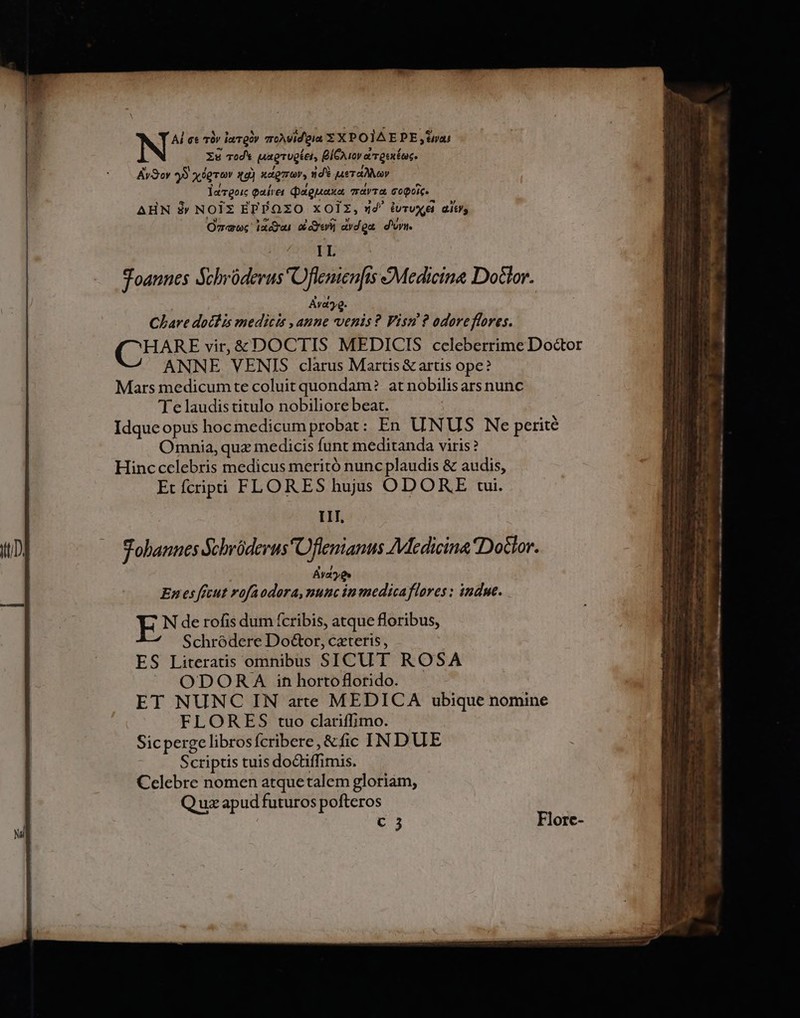 NAί σε τὸν ἰατρὸν πολυίδρια ΣΧΡΟΙΔΕΡΕ,
Σȣ̂ τοδὲ μαρτυρέει, βίβλιον ἀτρεκέως.
Ανθον χόρτων καὶ κάρπων, ἠδὲ μετάλλων
Ιατροις φαίνει φάρμακα πάντα σοφοῖς.
ΔΗΝ ȣ̓ν ΝΟΙΣ ΕΡΡΩΣΟ ΧΟΙΣ, ἠδ' ἐυτυχεῖ
Οπως ἰᾶσθαι ἀσθενῆ ἄνδρα
II.
Joannes Schröderus Uflenienſis Medicinæ Doctor.
Ανάγρ.
Chare doctis medicis, anne venis? Visn'? odore flores.
CHARE vir, & DOCTIS MEDICIS celeberrime Doctor
ANNE VENIS clarus Martis & artis ope?
Mars medicum te coluit quondam? at nobilis ars nunc
Te laudis titulo nobiliore beat.
Idque opus hoc medicum probat: En UNUS Ne peritè
Omnia, quæ medicis ſunt meditanda viris?
Hinc celebris medicus meritò nunc plaudis & audis,
Et ſcripti FLORES hujus ODORE tui.
III.
Johannes Schröderus Uflenianus Medicinæ Doctor.
Ανάγρ.
En es ſicut roſa odora, nunc in medica flores: indue.
EN de roſis dum ſcribis, atque floribus,
Schrödere Doctor, cæteris,
ES Literatis omnibus SICUT ROSA
ODORA in horto florido.
ET NUNC IN arte MEDICA ubique nomine
FLORES tuo clariſſimo.
Sic perge libros ſcribere, & ſic INDUE
Scriptis tuis doctiſſimis.
Celebre nomen atque talem gloriam,
Quæ apud futuros poſteros
C 3 Flore-